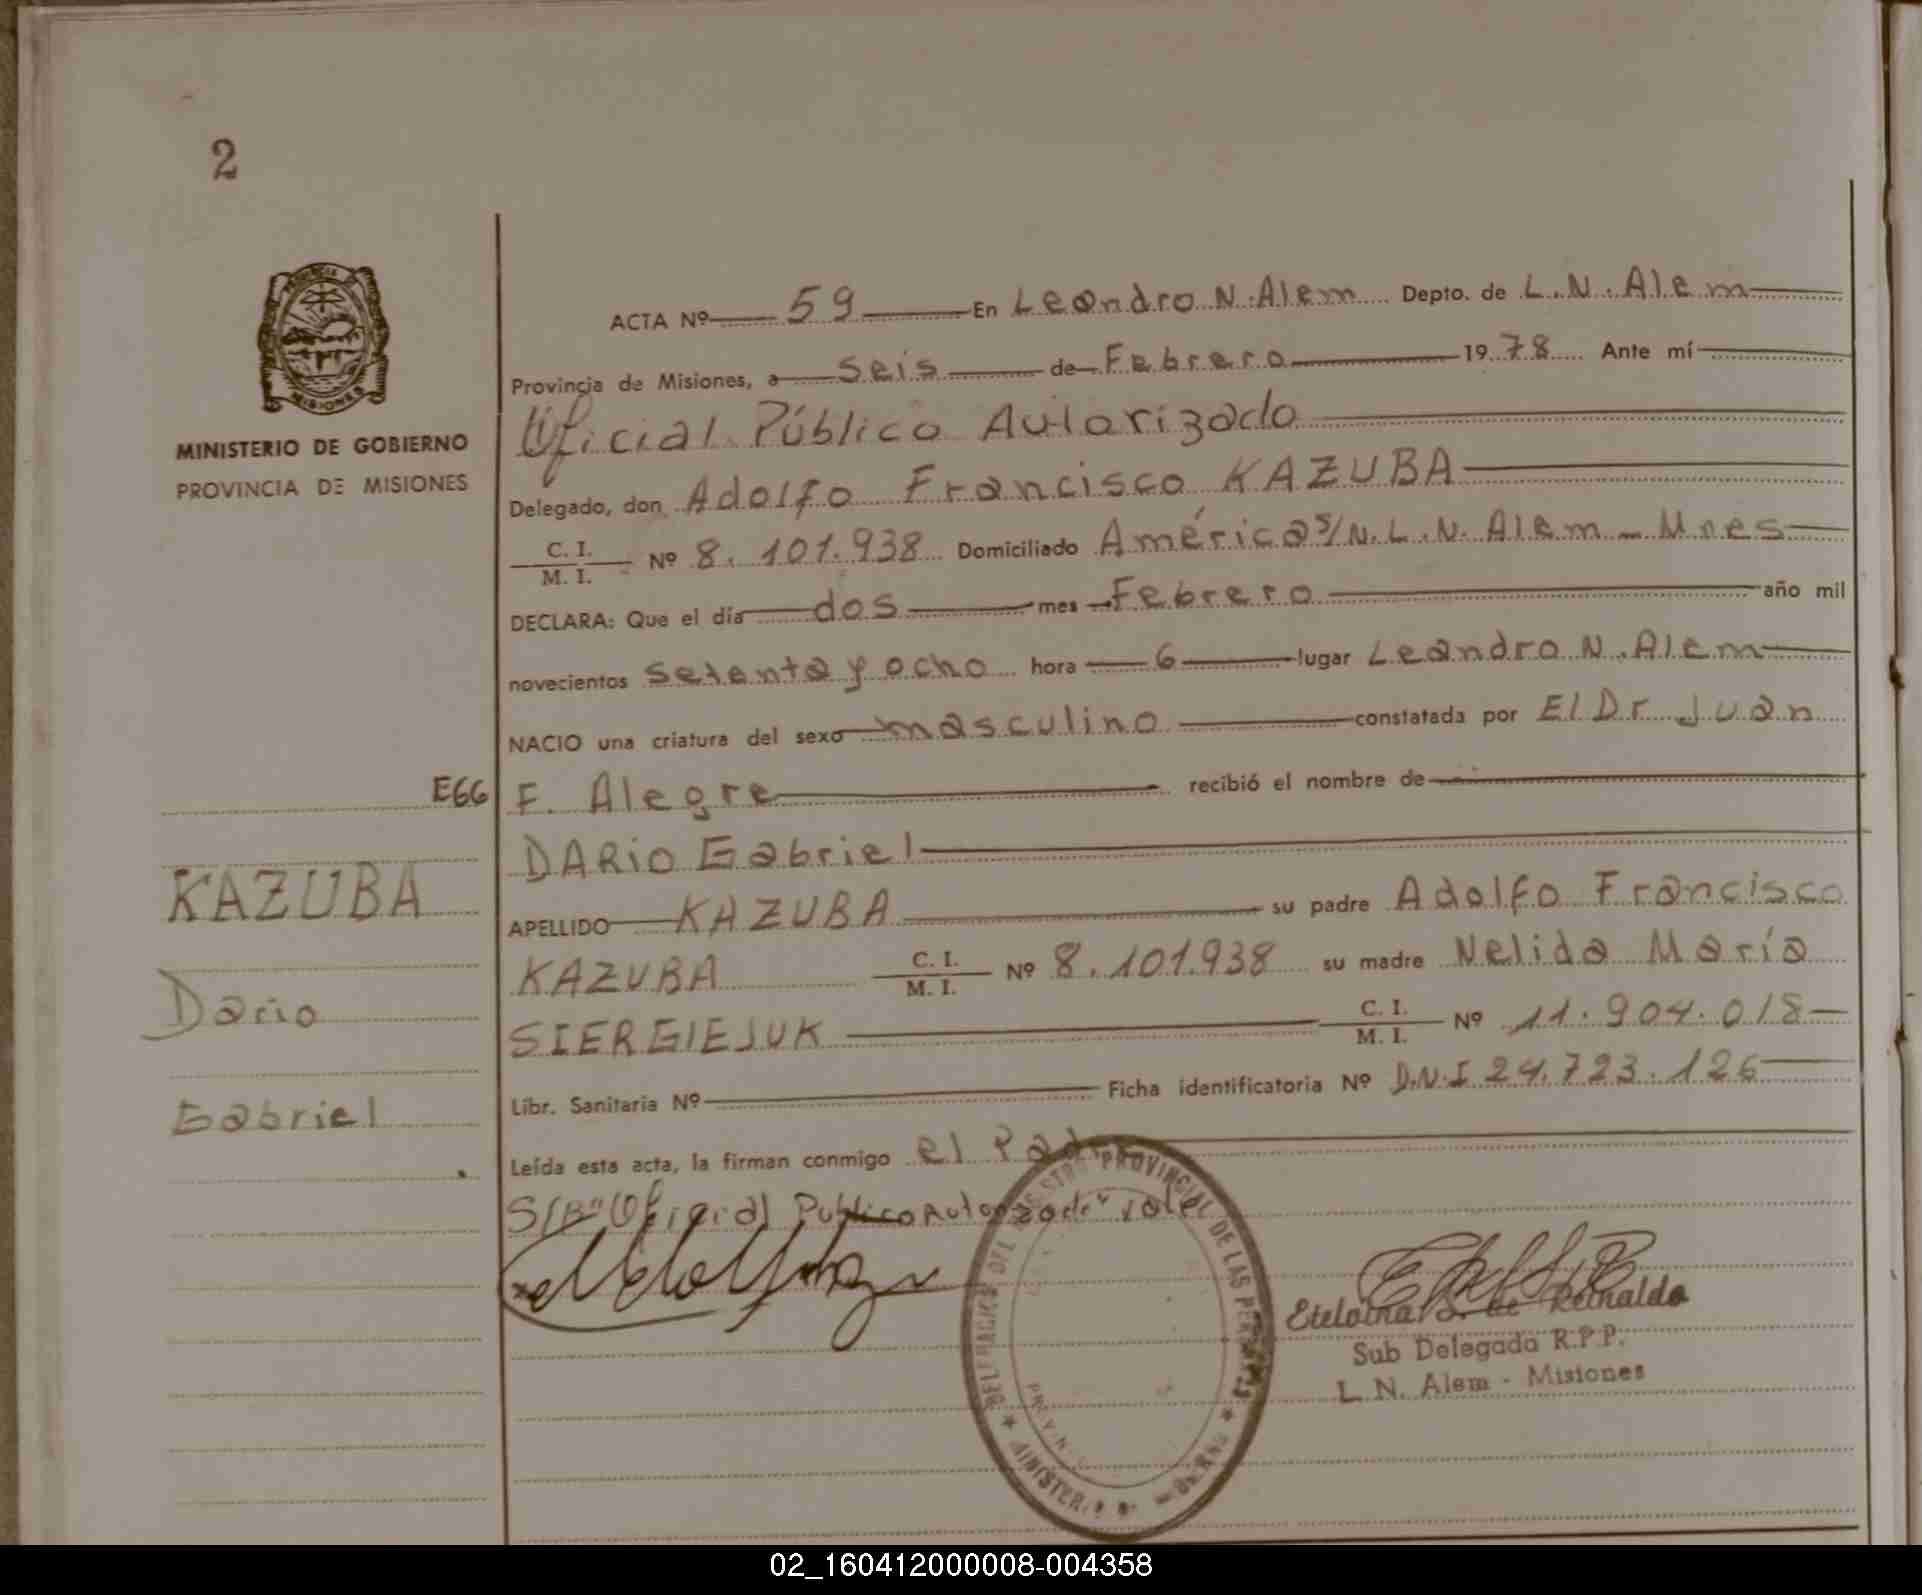 2
PROVINCIA
MISIONES
MINISTERIO DE GOBIERNO
PROVINCIA DE MISIONES
E66
KAZUBA
Dario
Gabriel
ACTA Nº 59 En Leandro N. Alem Depto. de L. N. Alem
Provincia de Misiones, a seis de Febrero 1978 Ante mí
Oficial Público Autorizado
Delegado, don Adolfo Francisco KAZUBA
C. I.
M. I. Nº 8.101.938 Domiciliado América S/N. L. N. Alem - Mnes
DECLARA: Que el día dos mes Febrero año mil
novecientos setenta y ocho hora 6 lugar Leandro N. Alem
NACIO una criatura del sexo masculino constatada por El Dr Juan
F. Alegre recibió el nombre de
DARIO Gabriel
APELLIDO KAZUBA su padre Adolfo Francisco
KAZUBA C. I.
M. I. Nº 8.101.938 su madre Nelida María
SIERGIEJUK C. I.
M. I. Nº 11.904.018
Libr. Sanitaria Nº Ficha identificatoria Nº D.N.I 24.723.126
Leída esta acta, la firman conmigo el Padre
S/B "Oficial Publico Autorizado" vale
DELEGACION DEL REGISTRO PROVINCIAL DE LAS PERSONAS
Etelvina de Reinaldo
Sub Delegada R.P.P.
L. N. Alem - Misiones
02_160412000008-004358